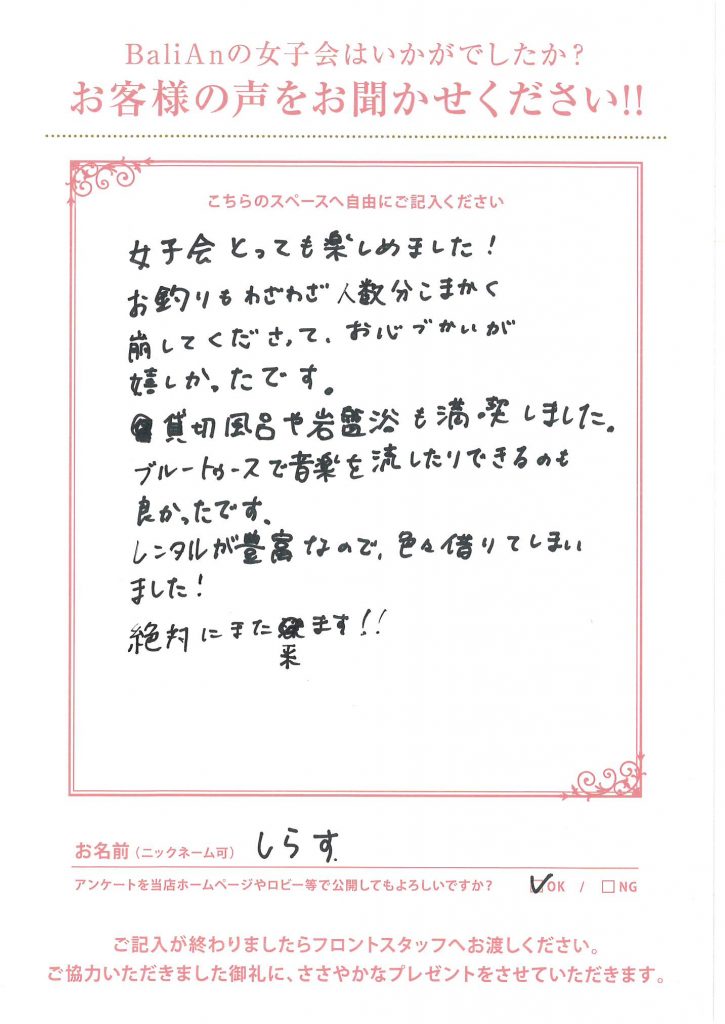 BaliAnの女子会はいかがでしたか？
お客様の声をお聞かせください!!
こちらのスペースへ自由にご記入ください
女子会とっても楽しめました！
お釣りもわざわざ人数分こまかく
崩してくださって、お心づかいが
嬉しかったです。
貸切風呂や岩盤浴も満喫しました。
ブルートゥースで音楽を流したりできるのも
良かったです。
レンタルが豊富なので、色々借りてしまい
ました！
絶対にまた来ます!!
お名前（ニックネーム可） しらす
アンケートを当店ホームページやロビー等で公開してもよろしいですか？ ☑OK / □NG
ご記入が終わりましたらフロントスタッフへお渡しください。
ご協力いただきました御礼に、ささやかなプレゼントをさせていただきます。